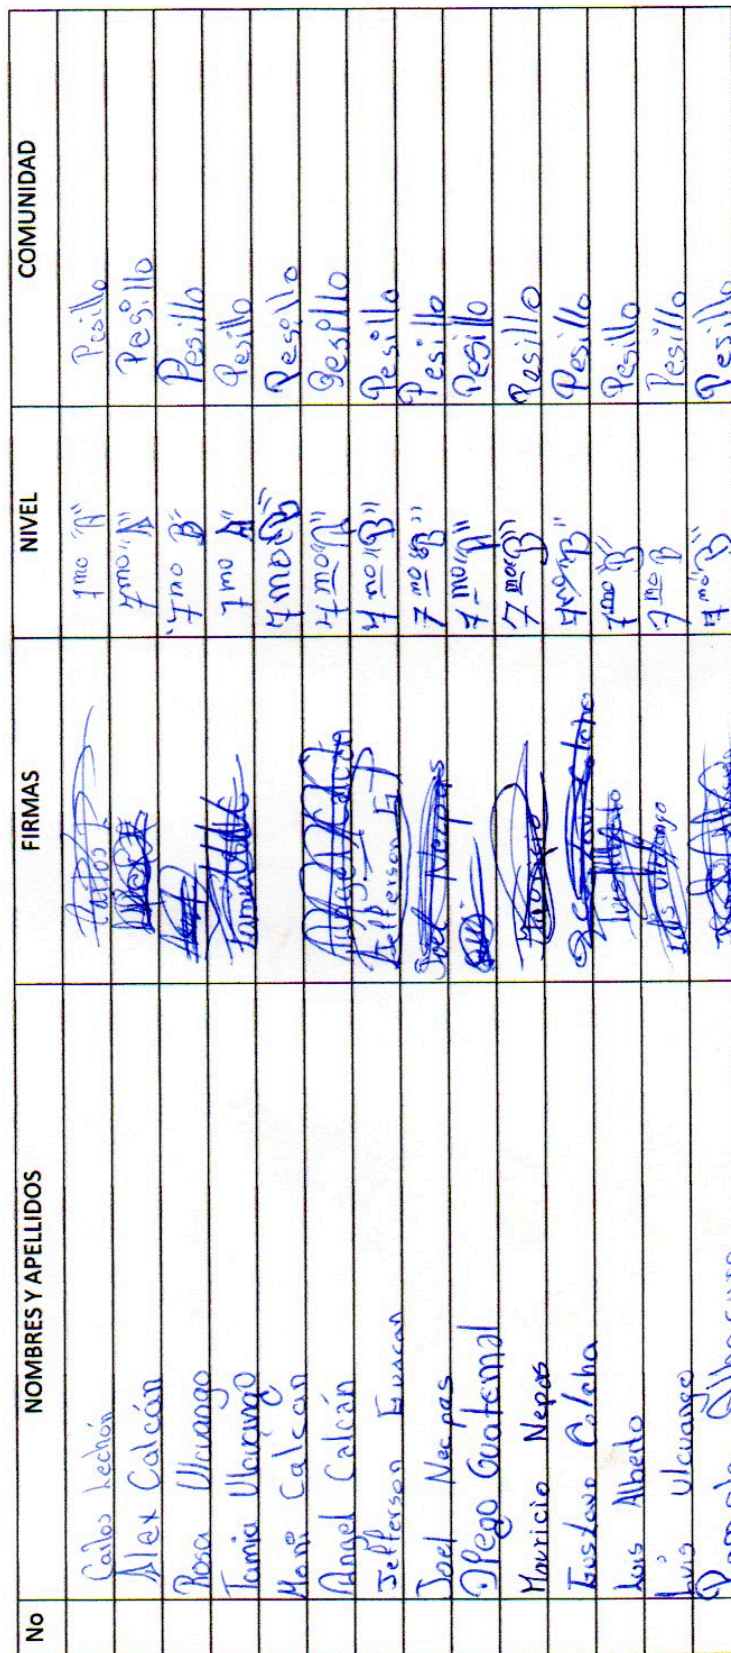 No NOMBRES Y APELLIDOS FIRMAS NIVEL COMUNIDAD
Carlos Lechón Carlos 7mo "A" Pesillo
Alex Calcán 7mo "A" Pesillo
Rosa Ulcuango 7mo B" Pesillo
Tamia Ulcuango Tamia 7mo A" Pesillo
Mari Calcan 7mo "B" Pesillo
Angel Calcán Angel Calcán 7mo "A" Pesillo
Jefferson Jefferson 7mo "B" Pesillo
Joel Necpas Joel Necpas 7mo "B" Pesillo
Diego Guatemal 7mo "A" Pesillo
Mauricio Nepas Mauricio 7mo "B" Pesillo
Gustavo Colcha 7mo "B" Pesillo
Luis Alberto Luis Alberto 7mo "B" Pesillo
Luis Ulcuango Luis Ulcuango 7mo B Pesillo
7mo "B" Pesillo